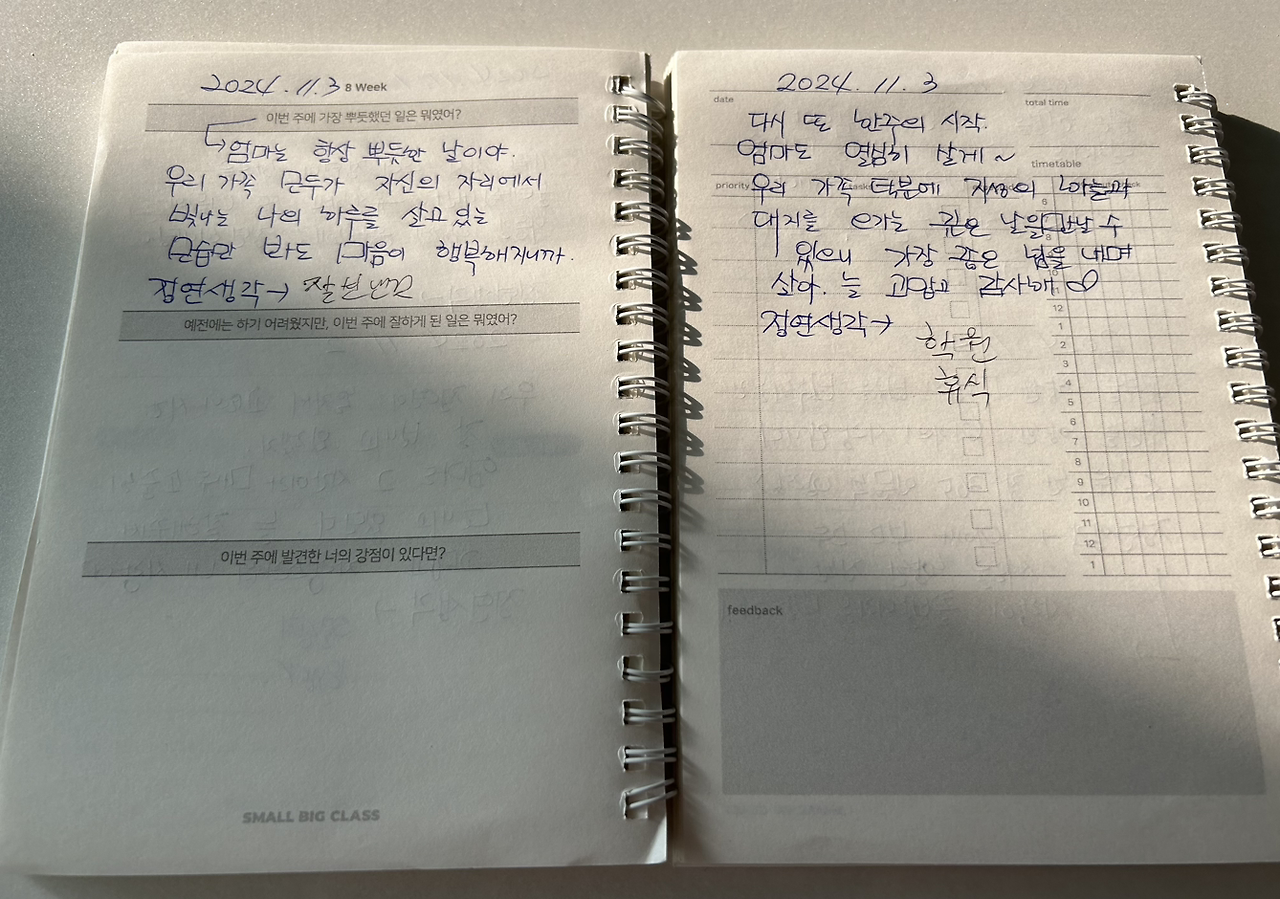 2024. 11. 3 8 Week
이번 주에 가장 뿌듯했던 일은 뭐였어?
엄마는 항상 뿌듯한 날이야.
우리 가족 모두가 자신의 자리에서
빛나는 나의 하루를 살고 있는
모습만 봐도 마음이 행복해지니까.
정연생각→
예전에는 하기 어려웠지만, 이번 주에 잘하게 된 일은 뭐였어?
이번 주에 발견한 너의 강점이 있다면?
SMALL BIG CLASS
2024. 11. 3
date
total time
다시 또 한주의 시작.
엄마도 열심히 살게~
timetable
priority
우리 가족 덕분에 지상의 하늘과
대지를 오가는 귀한 날을 만날 수
있으니 가장 좋은 넋을 내며
살아. 늘 고맙고 감사해
정연생각→
학원
휴식
6
8
10
12
1
2
3
4
5
6
7
8
9
10
11
12
1
feedback